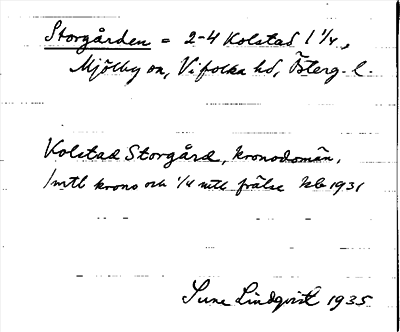 Storgården = 2-4 Kolstad 1 1/4,
Mjölby sn, Vifolka hd, Österg. l.
Kolstad Storgård, kronodomän,
1 mtl krono och 1/4 mtl frälse kb 1931
Sune Lindqvist 1935